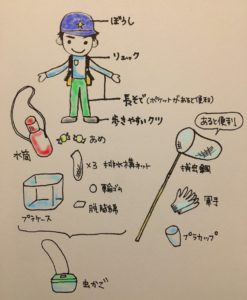 ぼうし
リュック
長そで(ポケットがあると便利)
歩きやすいクツ
あると便利
水筒
あめ
×3 排水溝ネット
輪ゴム
脱脂綿
プラケース
捕虫網
軍手
プラカップ
虫かご